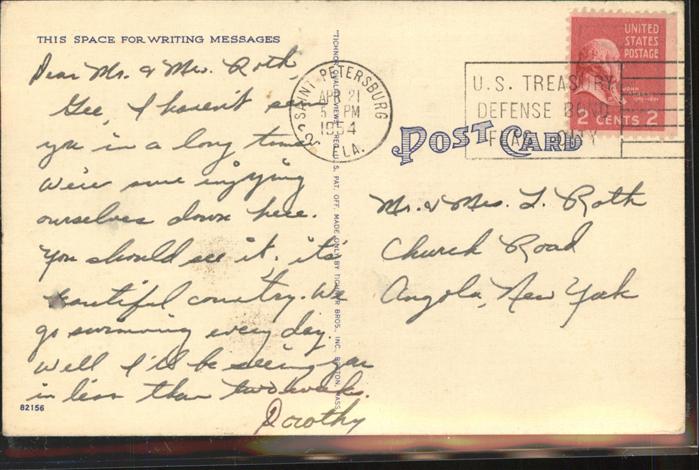 THIS SPACE FOR WRITING MESSAGES
Dear Mr. & Mrs. Roth,
Gee, I haven't seen
you in a long time
We're sure enjoying
ourselves down here.
You should see it. it's
beautiful country. We
go swimming every day.
Well I'll be seeing you
in less than two weeks.
Dorothy
82156
SAINT PETERSBURG
APR 21
5 PM
1954
FLA.
U.S. TREASURY
DEFENSE BOND
UNITED
STATES
POSTAGE
JOHN
2 CENTS 2
POST CARD
Mr. & Mrs. L. Roth
Church Road
Angola, New York